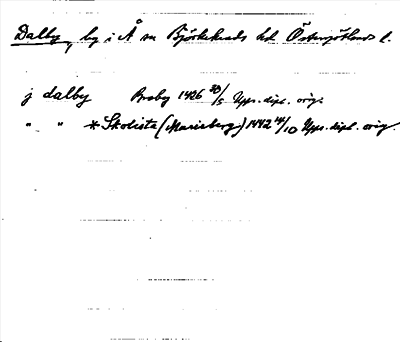 Dalby, by i Å sn Björkekinds hd Östergötlands l.
j dalby Broby 1426 30/5 Upps. dipl. orig.
" " * Skolista (Marieberg) 1442 14/10 Upps. dipl. orig.